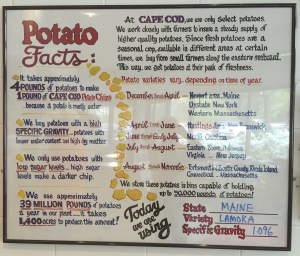 Potato
Facts:
At CAPE COD, we use only select potatoes.
We work closely with farmers to insure a steady supply of
higher quality potatoes. Since fresh potatoes are a
seasonal crop, available in different areas at certain
times, we buy from small farms along the eastern seaboard.
This way, we get potatoes at their peak of freshness.
Potato varieties vary, depending on time of year.
It takes approximately
4 POUNDS of potatoes to make
1 POUND of CAPE COD Potato Chips
because a potato is mostly water.
We buy potatoes with a high
SPECIFIC GRAVITY... potatoes with
lower water content and high dry matter
We only use potatoes with
low sugar levels... high sugar
levels make a darker chip.
We use approximately
39 MILLION POUNDS of potatoes
a year in our plant.... it takes
1,400 acres to produce this amount!
December thru April
Upstate New York
Western Massachusetts
April thru June
July thru August
Virginia - New Jersey
August thru
Western Massachusetts
We store these potatoes in bins capable of holding
up to 50,000 pounds of potatoes!
Today
we are
using
State MAINE
Variety LAMOKA
Specific Gravity 1.096